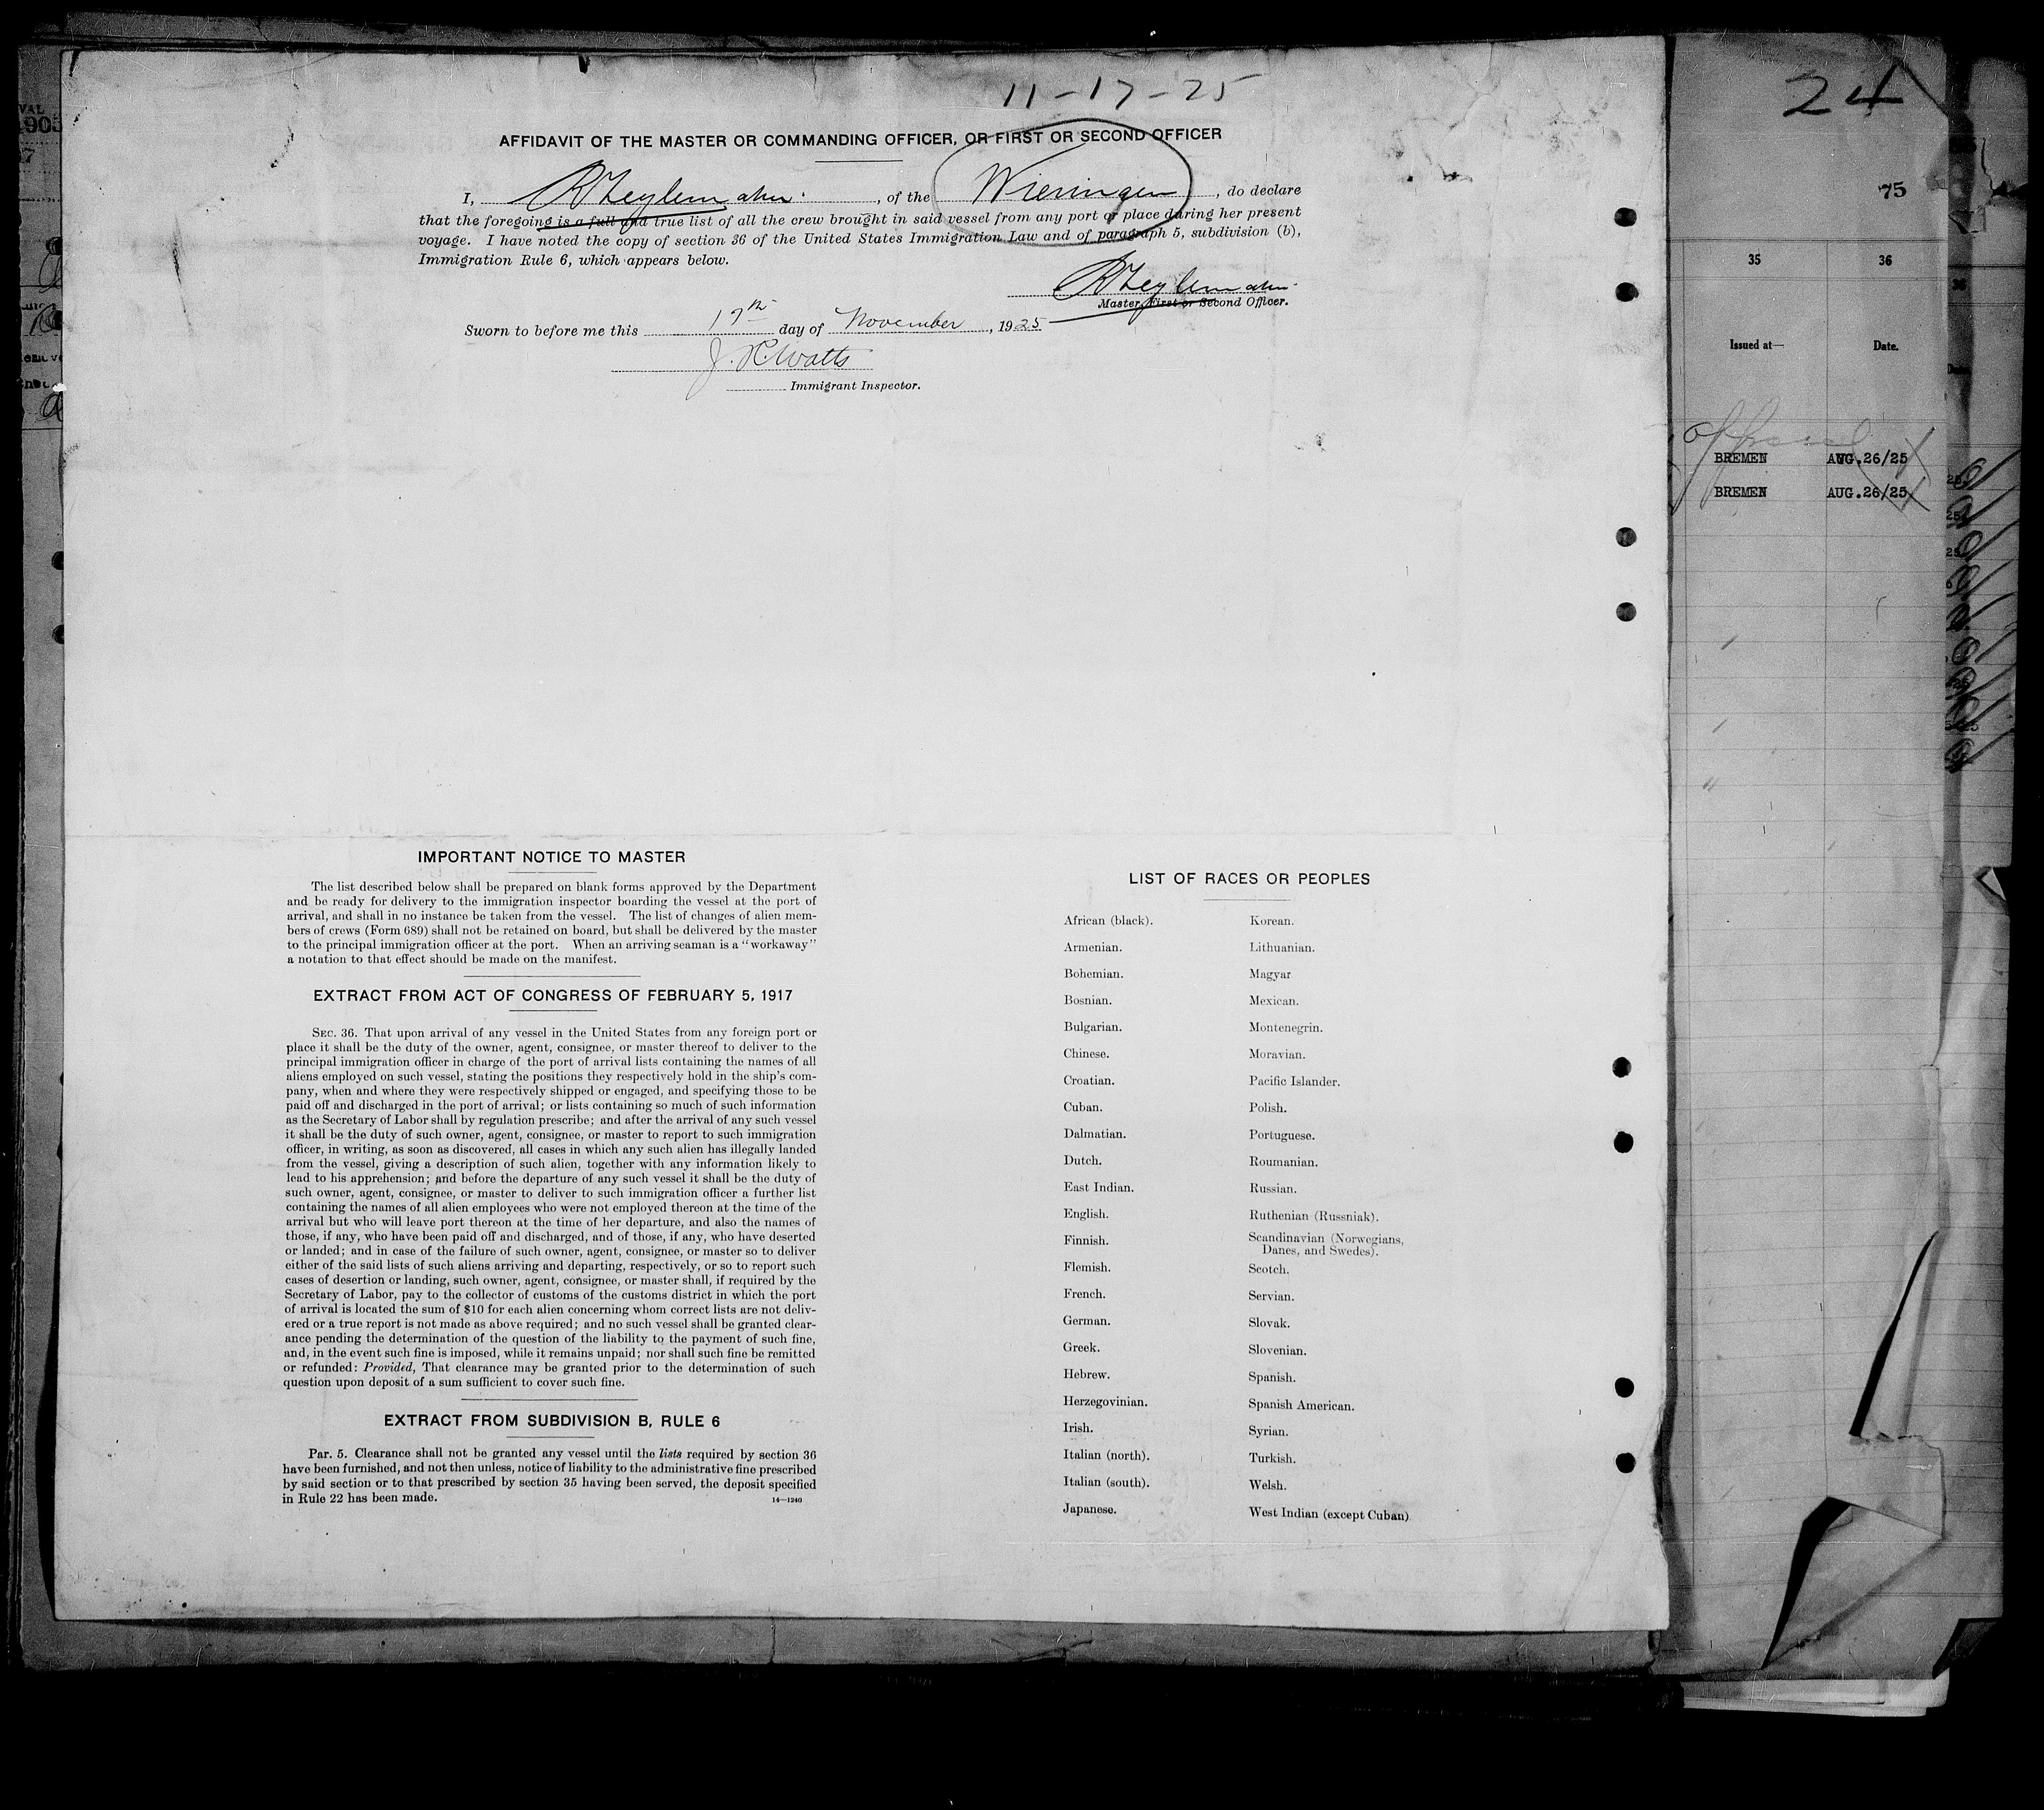 11-17-25
24
AFFIDAVIT OF THE MASTER OR COMMANDING OFFICER, OR FIRST OR SECOND OFFICER
I, , of the Wieringen, do declare
that the foregoing is a full and true list of all the crew brought in said vessel from any port or place during her present
voyage. I have noted the copy of section 36 of the United States Immigration Law and of paragraph 5, subdivision (b),
Immigration Rule 6, which appears below.
Master, First or Second Officer.
Sworn to before me this 17th day of November, 1925
J. H. Watts
Immigrant Inspector.
IMPORTANT NOTICE TO MASTER
The list described below shall be prepared on blank forms approved by the Department
and be ready for delivery to the immigration inspector boarding the vessel at the port of
arrival, and shall in no instance be taken from the vessel. The list of changes of alien mem-
bers of crews (Form 689) shall not be retained on board, but shall be delivered by the master
to the principal immigration officer at the port. When an arriving seaman is a "workaway"
a notation to that effect should be made on the manifest.
EXTRACT FROM ACT OF CONGRESS OF FEBRUARY 5, 1917
SEC. 36. That upon arrival of any vessel in the United States from any foreign port or
place it shall be the duty of the owner, agent, consignee, or master thereof to deliver to the
principal immigration officer in charge of the port of arrival lists containing the names of all
aliens employed on such vessel, stating the positions they respectively hold in the ship's com-
pany, when and where they were respectively shipped or engaged, and specifying those to be
paid off and discharged in the port of arrival; or lists containing so much of such information
as the Secretary of Labor shall by regulation prescribe; and after the arrival of any such vessel
it shall be the duty of such owner, agent, consignee, or master to report to such immigration
officer, in writing, as soon as discovered, all cases in which any such alien has illegally landed
from the vessel, giving a description of such alien, together with any information likely to
lead to his apprehension; and before the departure of any such vessel it shall be the duty of
such owner, agent, consignee, or master to deliver to such immigration officer a further list
containing the names of all alien employees who were not employed thereon at the time of the
arrival but who will leave port thereon at the time of her departure, and also the names of
those, if any, who have been paid off and discharged, and of those, if any, who have deserted
or landed; and in case of the failure of such owner, agent, consignee, or master so to deliver
either of the said lists of such aliens arriving and departing, respectively, or so to report such
cases of desertion or landing, such owner, agent, consignee, or master shall, if required by the
Secretary of Labor, pay to the collector of customs of the customs district in which the port
of arrival is located the sum of $10 for each alien concerning whom correct lists are not deliv-
ered or a true report is not made as above required; and no such vessel shall be granted clear-
ance pending the determination of the question of the liability to the payment of such fine,
and, in the event such fine is imposed, while it remains unpaid; nor shall such fine be remitted
or refunded: Provided, That clearance may be granted prior to the determination of such
question upon deposit of a sum sufficient to cover such fine.
EXTRACT FROM SUBDIVISION B, RULE 6
Par. 5. Clearance shall not be granted any vessel until the lists required by section 36
have been furnished, and not then unless, notice of liability to the administrative fine prescribed
by said section or to that prescribed by section 35 having been served, the deposit specified
in Rule 22 has been made.
14—1240
LIST OF RACES OR PEOPLES
African (black).
Armenian.
Bohemian.
Bosnian.
Bulgarian.
Chinese.
Croatian.
Cuban.
Dalmatian.
Dutch.
East Indian.
English.
Finnish.
Flemish.
French.
German.
Greek.
Hebrew.
Herzegovinian.
Irish.
Italian (north).
Italian (south).
Japanese.
Korean.
Lithuanian.
Magyar
Mexican.
Montenegrin.
Moravian.
Pacific Islander.
Polish.
Portuguese.
Roumanian.
Russian.
Ruthenian (Russniak).
Scandinavian (Norwegians,
Danes, and Swedes).
Scotch.
Servian.
Slovak.
Slovenian.
Spanish.
Spanish American.
Syrian.
Turkish.
Welsh.
West Indian (except Cuban)
75
35 36
Issued at— Date.
BREMEN AUG.26/25
BREMEN AUG.26/25